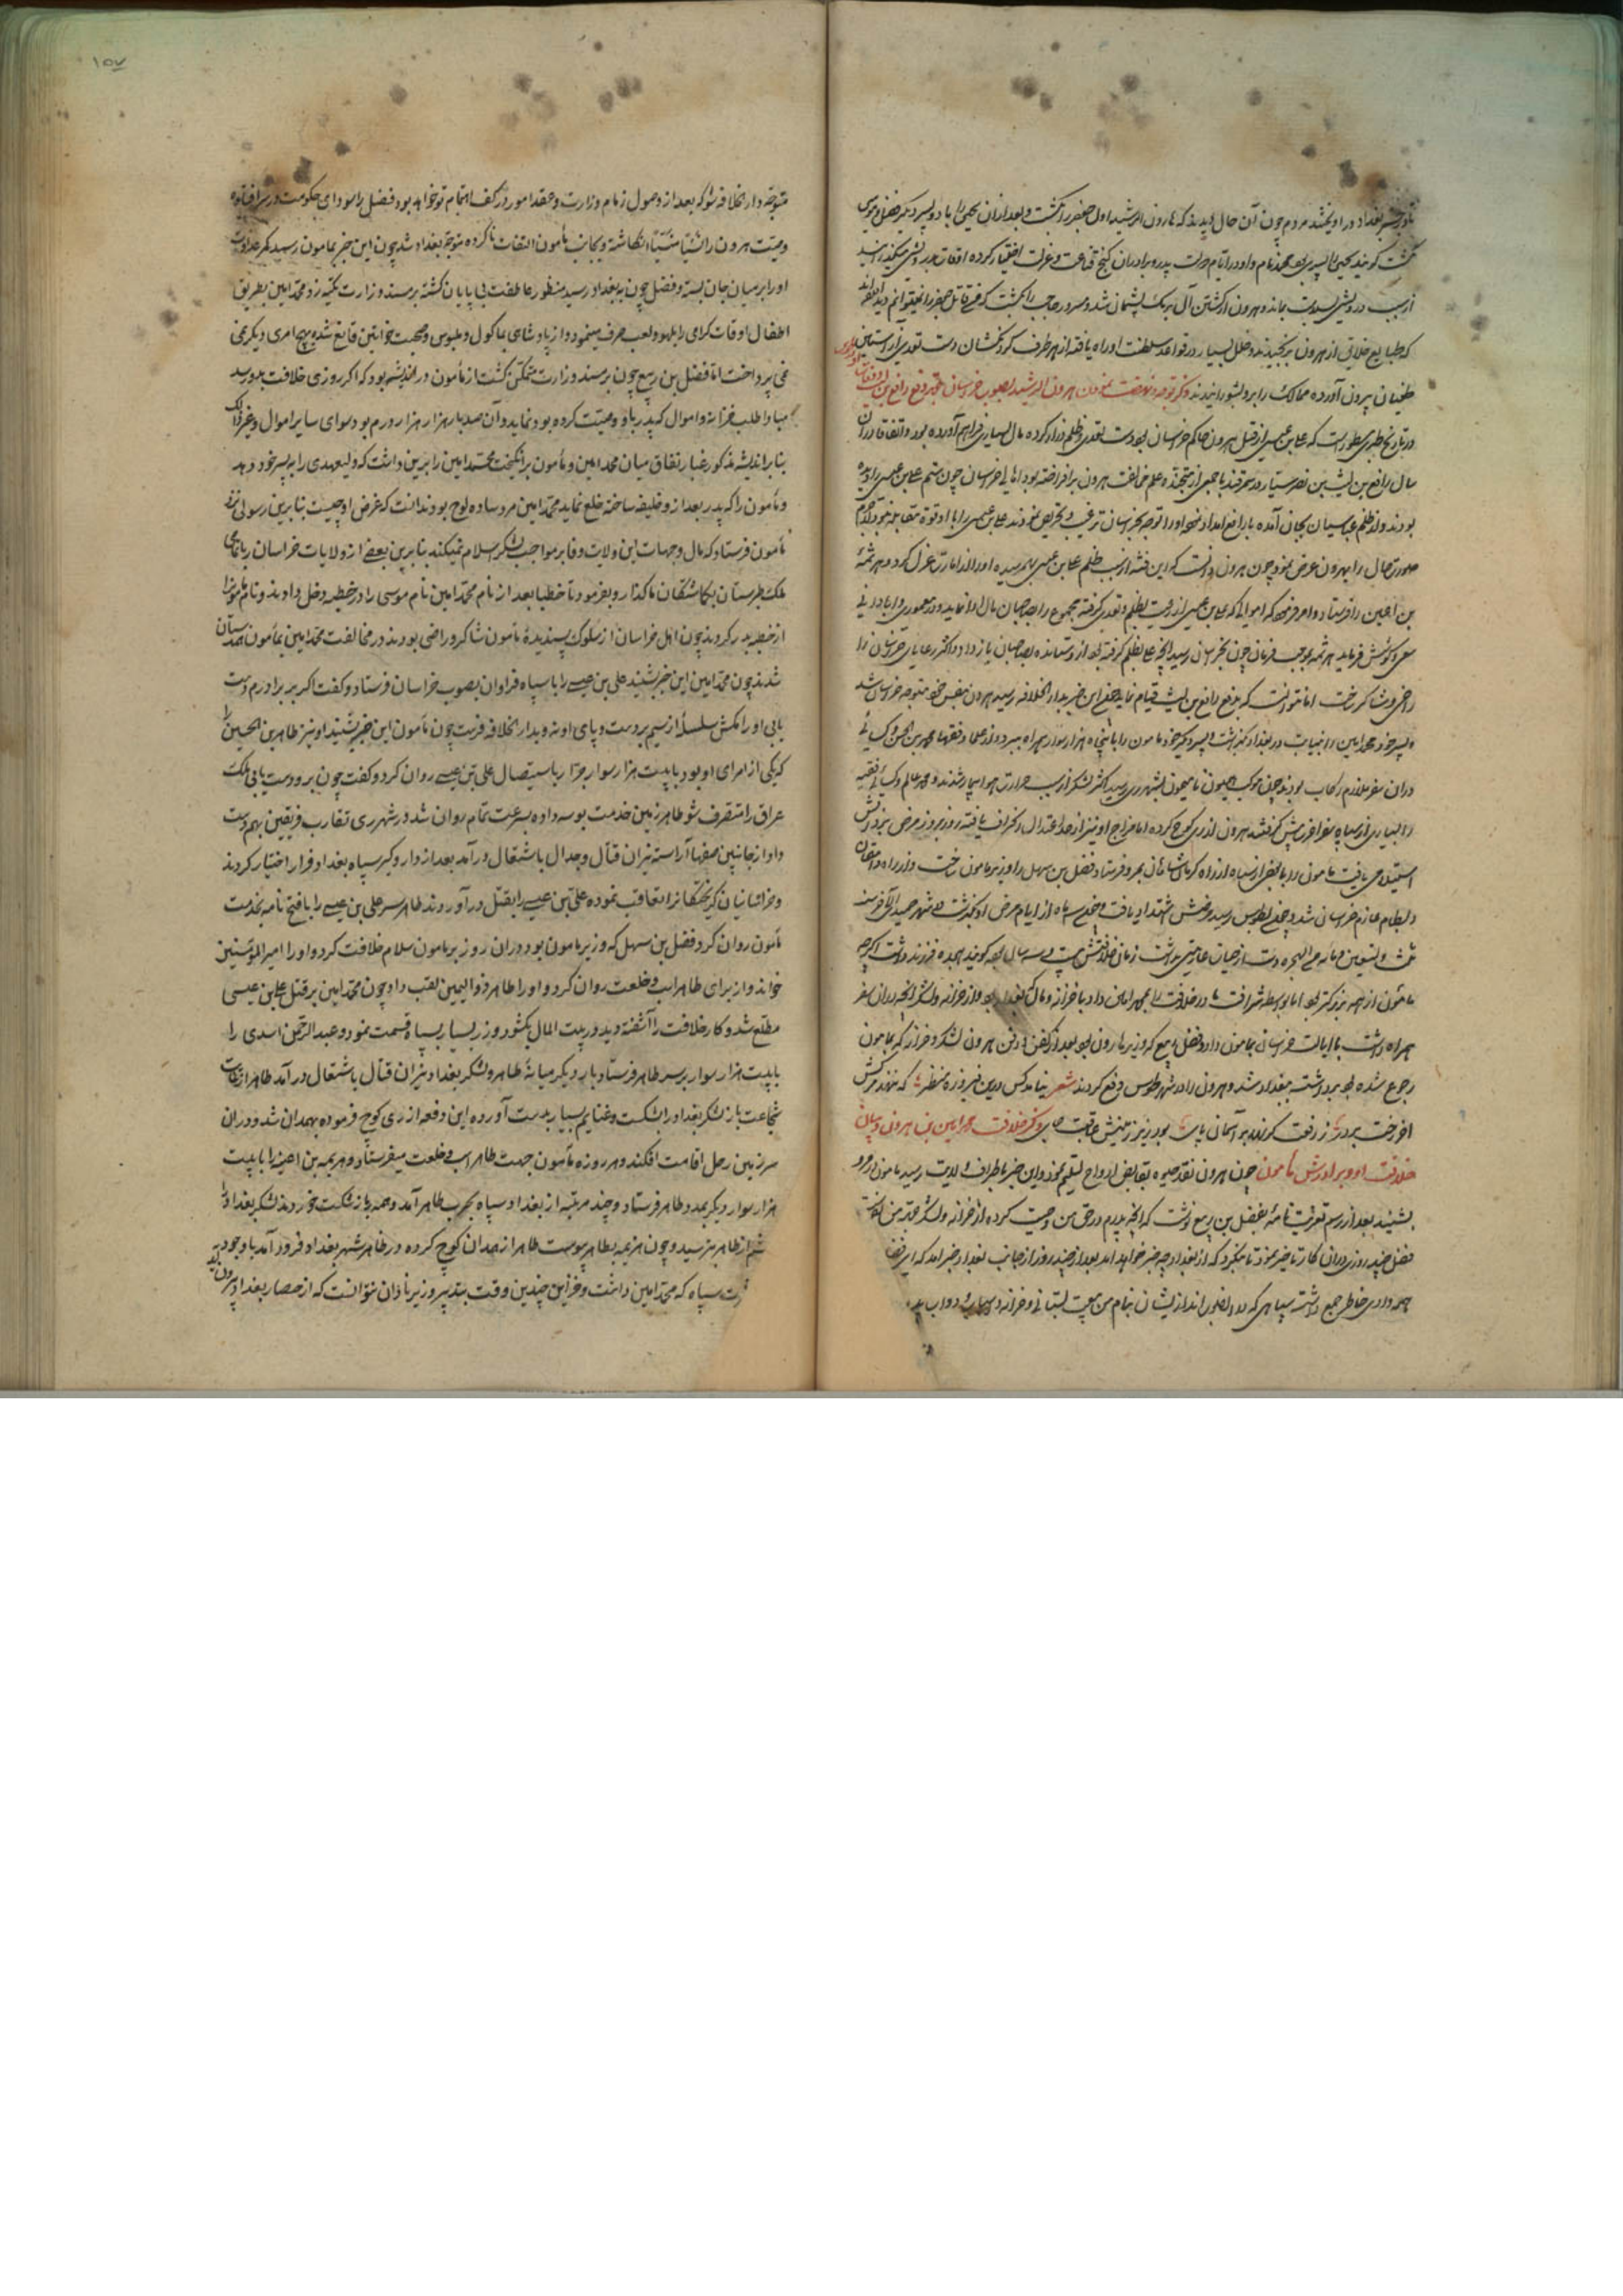 بغداد در آویختند مردم چون آن حال بدیدند که هارون الرشید اول جعفر را بکشت و بعد از آن یحیی را با دو پسر دیگر فضل و موسی
بکشت گویند یحیی را پسری بود محمد نام و او در ایام دولت پدر و برادران کنج قناعت و عزلت اختیار کرده اوقات بدرویشی میگذرانید
از سبب درویشی بسلامت بماند و هرون از کشتن آل برمک پشیمان شد و مسرور حاجب را بکشت که قاتل جعفر را نمیتوانم دید
که طبایع خلایق از هرون برنجیدند و خلل بسیار در قواعد سلطنت او راه یافته از هر طرف گردنکشان دست تعدی از آستین
طغیان بیرون آورده ممالک را بر و بشورانیدند ذکر توجه و نهضت نمودن هرون الرشید بصوب خراسان بجهة دفع رافع بن
در تاریخ طبری مسطورست که علی بن عیسی از قبل هرون حاکم خراسان بود دست تعدی و ظلم دراز کرده مال بسیاری فراهم آورده بود و اتفاقا در آن
سال رافع بن لیث بن نصر سیار در سمرقند با جمعی از متجنده علم مخالفت هرون برافراخته بود اهالی خراسان چون ستم علی بن عیسی را دیده
بودند و از ظلم عباسیان بجان آمده با رافع امداد نموده او را بتوجه بخراسان ترغیب و تحریص نمودند علی بن عیسی را با او قوة مقابله نبود لاجرم
صورت حال را بهرون عرض نمود چون هرون دانست که این فتنه از سبب ظلم علی بن عیسی بهم رسیده او را از امارت عزل کرد و هرثمة
بن اعین را فرستاد و امر فرمود که اموالی که علی بن عیسی از رعیت بظلم و تعدی گرفته مجموع را بصاحبان مال ادا نماید و در معموری و آبادانی
سعی و کوشش فرماید هرثمه بموجب فرمان چون بخراسان رسید آنچه علی بظلم گرفته بود از و ستانده بصاحبان باز داد و اکثر رعایای خراسان را
راضی و شاکر ساخت اما نتوانست که بدفع رافع بن لیث قیام نماید چون این خبر بدار الخلافه رسید هرون بنفس خود متوجه خراسان شد
و پسر خود محمد امین را بنیابت در بغداد بگذاشت و پسر دیگر خود مامون را با پنجاه هزار سوار همراه ببرد و از علما و فقها محمد بن الحسن و کسائی
در آن سفر ملازم رکاب بودند چون موکب همیون بشهر ری رسید اکثر لشکر از سبب حرارت هوا بیمار شدند و محمد عالم و کسائی فقیه
را بسیاری از سپاه سفر آخرت پیش گرفتند هرون از ری کوچ کرده اما مزاج او نیز از حد اعتدال انحراف یافته روز بروز مرض برو
استیلا می یافت مامون را با بعضی از سپاه از راه کرمانشاهان بمرو فرستاد و فضل بن سهل را وزیر مامون ساخت و از راه دامغان
و بسطام عازم خراسان شد و چون بطوس رسید مرضش اشتداد یافت و چون سه ماه از ایام مرض او بگذشت در شهر جمیدی الآخر سنه
ثلث و تسعین و مائه من الهجره دست از حیات عاریتی بداشت زمان خلافتش بیست و سه سال بود گویند هجده فرزند داشت اگرچه
مامون از همه بزرگتر بود اما بواسطه شرافت مادر خلافت را بمحمد امین داد با خزاین و ممالک بغداد و از خزانه و لشکر آنچه در آن سفر
همراه داشت با ایالت خراسان بمامون داد و فضل ربیع که وزیر هارون بود بعد از کفن و دفن هرون لشکر و خزاین که بمامون
رجوع شده بود برداشته ببغداد شد و هرون را در شهر طوس دفن کردند شعر نیامد کس درین فیروزه منظر که نهند مرکش
آخر رخت بر در ز رفعت گر نهد بر آسمان پای بود زیر زمینش عاقبت جای ذکر خلافت محمد امین بن هرون و بیان
خلافت او و برادرش مامون چون هرون نقد حیوة بقابض ارواح تسلیم نمود و این خبر باطراف ولایت رسید مامون در مرو
بشنید بعد از رسم تعزیت نامه بفضل بن ربیع نوشت که آنچه پدرم در حق من وصیت کرده از خزانه و لشکر پیش من
فضل چند روزی در آن کار تاخیر نمود تا بنگرد که از بغداد چه خبر خواهد آمد بعد از چند روز از جانب بغداد خبر آمد که ای فضل
همه وادی خاطر جمع داشته سپاهی که از ایشان بنام من بیعت بستانی و خزانه و اسباب و دواب
۱۵۷
متوجه دار الخلافه شو که بعد از وصول زمام وزارت و حل و عقد امور در کف اهتمام تو خواهد بود فضل را سودای حکومت در سر افتاده
وصیت هرون را نسیاً منسیاً انگاشته و بجانب مأمون التفات ناکرده متوجه بغداد شد چون این خبر بمامون رسید کمر عداوت
او را بر میان جان بسته و فضل چون به بغداد رسید منظور عاطفت بی پایان گشته بر مسند وزارت تکیه زد و محمد امین بطریق
اطفال اوقات گرامی را بلهو و لعب صرف مینمود و از پادشاهی بماکول و ملبوس و صحبت خواتین قانع شده بهیچ امری دیگر نمی
نمی پرداخت اما فضل بن ربیع چون بر مسند وزارت متمکن گشت از مأمون در اندیشه بود که اگر روزی خلافت بدو رسد
مبادا طلب خزانه و اموال که پدر باو وصیت کرده بود نماید و آن صد بار هزار هزار درم بود سوای سایر اموال و غیر ذلک
بنابر اندیشه مذکور غبار نفاق میان محمد امین و مأمون برانگیخت محمد امین را برین داشت که ولیعهدی را به پسر خود دهد
و مأمون را که پدر بعد از و خلیفه ساخته خلع نماید محمد امین مرد ساده لوح بود ندانست که غرض او چیست بنابرین رسولی نزد
مأمون فرستاد که مال و جهات این ولایت وفا بر مواجب لشکر اسلام نمیکند بنابرین بعضی از ولایات خراسان را با تمامی
ملک طبرستان بگماشتگان ما گذار و بفرمود تا خطبا بعد از نام محمد امین نام موسی را در خطبه دخل دادند و نام مامون را
از خطبه بدر کردند چون اهل خراسان از سلوک پسندیدهٔ مأمون شاکر و راضی بودند در مخالفت محمد امین بمأمون همداستان
شدند چون محمد امین این خبر شنید علی بن عیسی را با سپاه فراوان بصوب خراسان فرستاد و گفت اگر بر برادرم دست
یابی او را مکش سلسلهٔ از سیم بر دست و پای او نه و بدار الخلافه فرست چون مأمون این خبر بشنید او نیز طاهر بن الحسین را
که یکی از امرای او بود با بیست هزار سوار جرار باستیصال علی بن عیسی روان کرد و گفت چون بر و دست یابی ملک
عراق را متصرف شو طاهر زمین خدمت بوسه داده بسرعت تمام روان شد و در شهر ری تقارب فریقین بهم دست
داد و از جانبین صفها آراسته نیران قتال و جدال باشتعال درآمد بعد از دار و گیر سپاه بغداد فرار اختیار کردند
و خراسانیان گریختگانرا تعاقب نموده علی بن عیسی را بقتل درآوردند طاهر سر علی بن عیسی را با فتح نامه بخدمت
مأمون روان کرد و فضل بن سهل که وزیر مامون بود در آن روز بر مامون سلام خلافت کرد و او را امیر المؤمنین
خواند و از برای طاهر اسب و خلعت روان کرد و او را طاهر ذو الیمین لقب داد چون محمد امین بر قتل علی بن عیسی
مطلع شد و کار خلافت را آشفته دید در بیت المال بگشود و زر بسیار بسپاه قسمت نمود و عبد الرحمن اسدی را
با بیست هزار سوار بر سر طاهر فرستاد بار دیگر میانهٔ طاهر و لشکر بغداد نیران قتال باشتعال درآمد طاهر از غایت
شجاعت باز لشکر بغداد را بشکست و غنایم بسیار بدست آورده این دفعه از ری کوچ فرموده بهمدان شد و در آن
سرزمین رحل اقامت افکند و هر روزه مأمون جهت طاهر اسب و خلعت میفرستاد و هزیمه بن اعین را با بیست
هزار سوار دیگر بمدد طاهر فرستاد و چند مرتبه از بغداد سپاه بحرب طاهر آمد و همه باز شکست خوردند لشکر بغداد را
از طاهر بترسید و چون هزیمه بطاهر پیوست طاهر از همدان کوچ کرده در ظاهر شهر بغداد فرود آمد با وجود
سپاه که محمد امین داشت و خزاین چندین وقت بتدبیر وزیر نادان نتوانست که از حصار بغداد بیرون آید